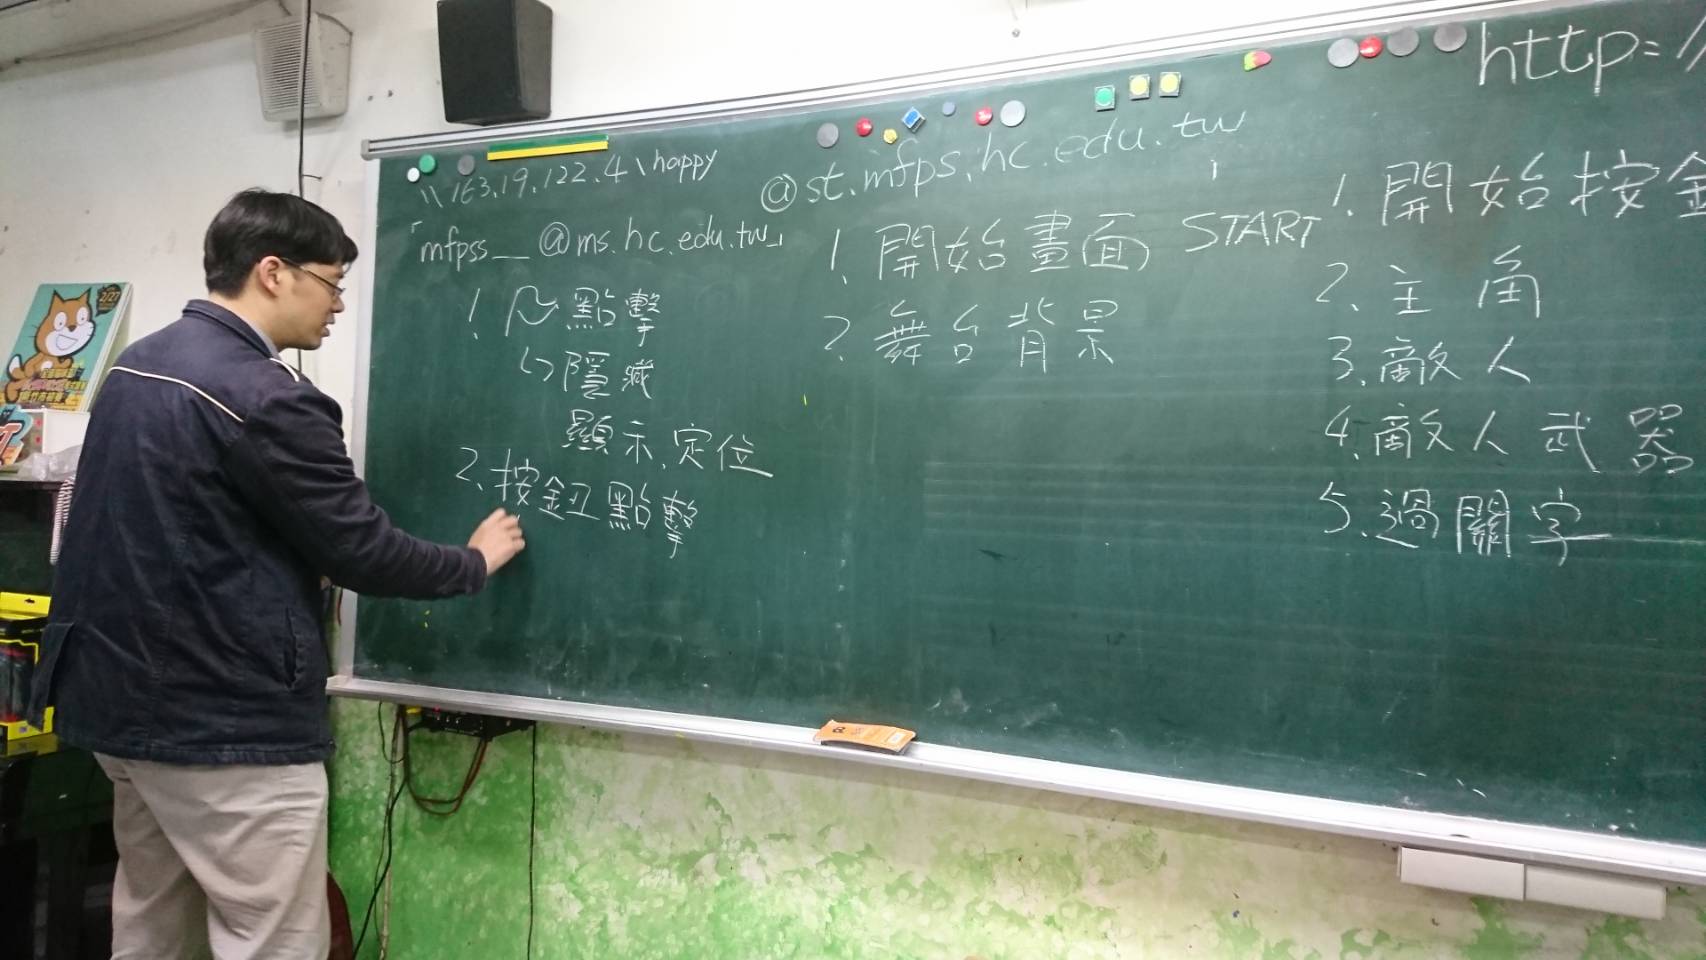 \\163.19.122.4\happy
「mfpss__@ms.hc.edu.tw」
1. 點擊
↳隱藏
顯示、定位
2. 按鈕點擊
@st.mfps.hc.edu.tw
1. 開始畫面 START
2. 舞台背景
http://
1. 開始按鈕
2. 主角
3. 敵人
4. 敵人武器
5. 過關字
2/27